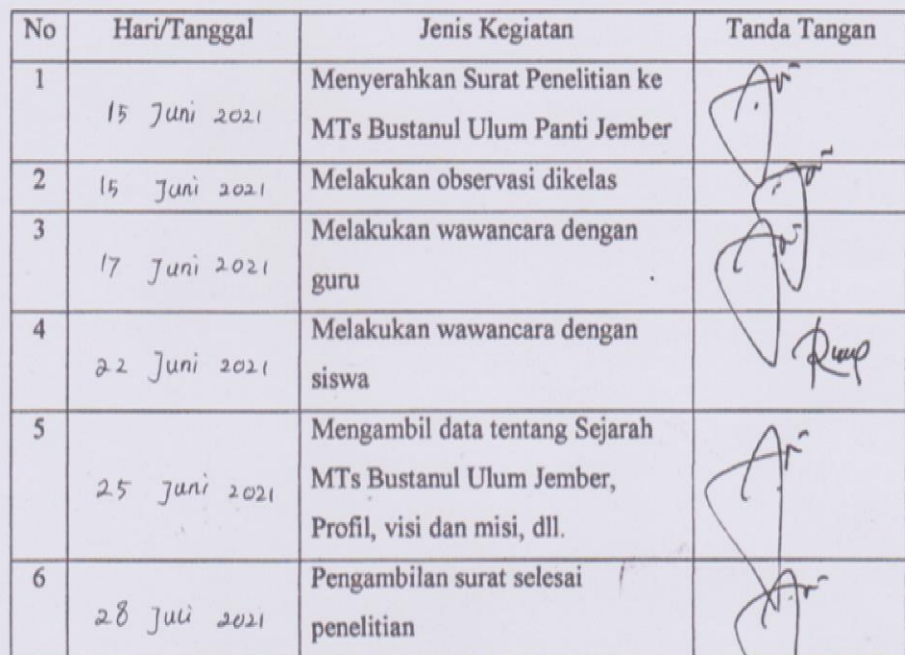 No Hari/Tanggal Jenis Kegiatan Tanda Tangan
1 15 Juni 2021 Menyerahkan Surat Penelitian ke
MTs Bustanul Ulum Panti Jember
2 15 Juni 2021 Melakukan observasi dikelas
3 17 Juni 2021 Melakukan wawancara dengan
guru
4 22 Juni 2021 Melakukan wawancara dengan
siswa
5 25 Juni 2021 Mengambil data tentang Sejarah
MTs Bustanul Ulum Jember,
Profil, visi dan misi, dll.
6 28 Juli 2021 Pengambilan surat selesai
penelitian